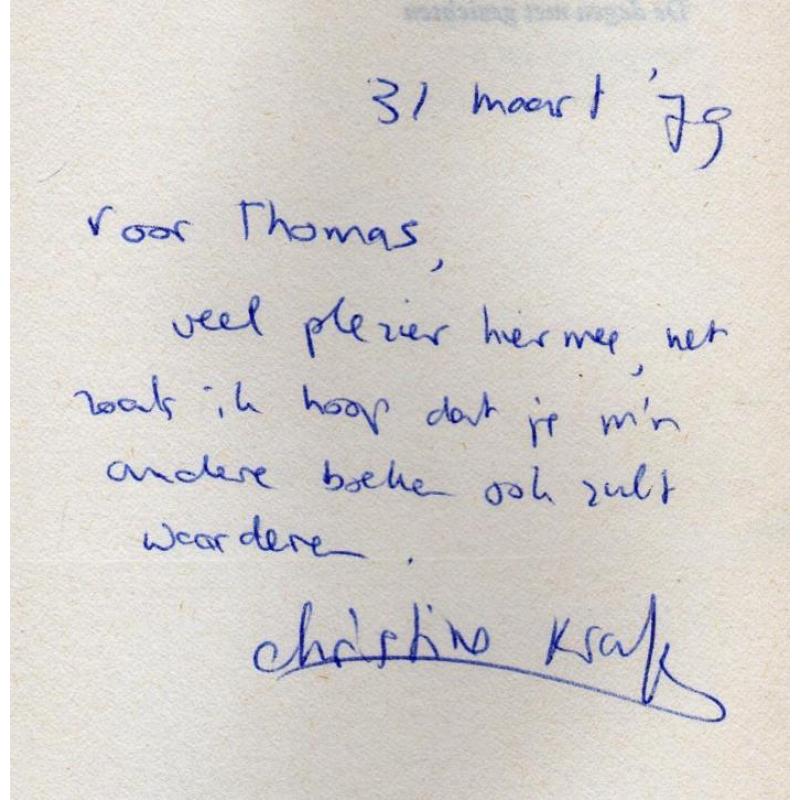 31 maart '79
voor Thomas,
veel plezier hiermee, net
zoals ik hoop dat je m'n
andere boeken ook zult
waarderen.
Christine Kraft